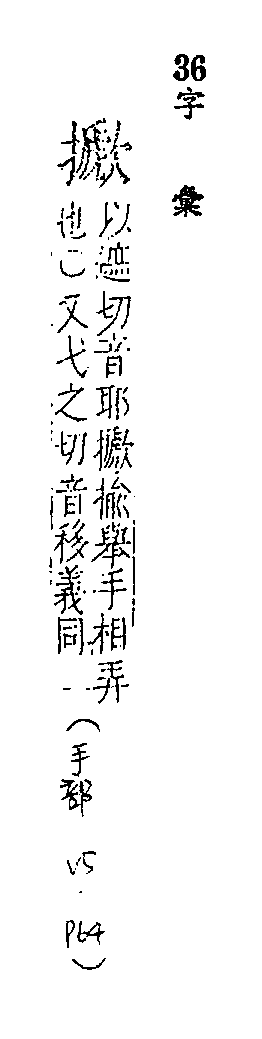 36字彙
擨
以遮切音耶擨揄舉手相弄
也○又弋之切音移義同
(手部 V5.P64)